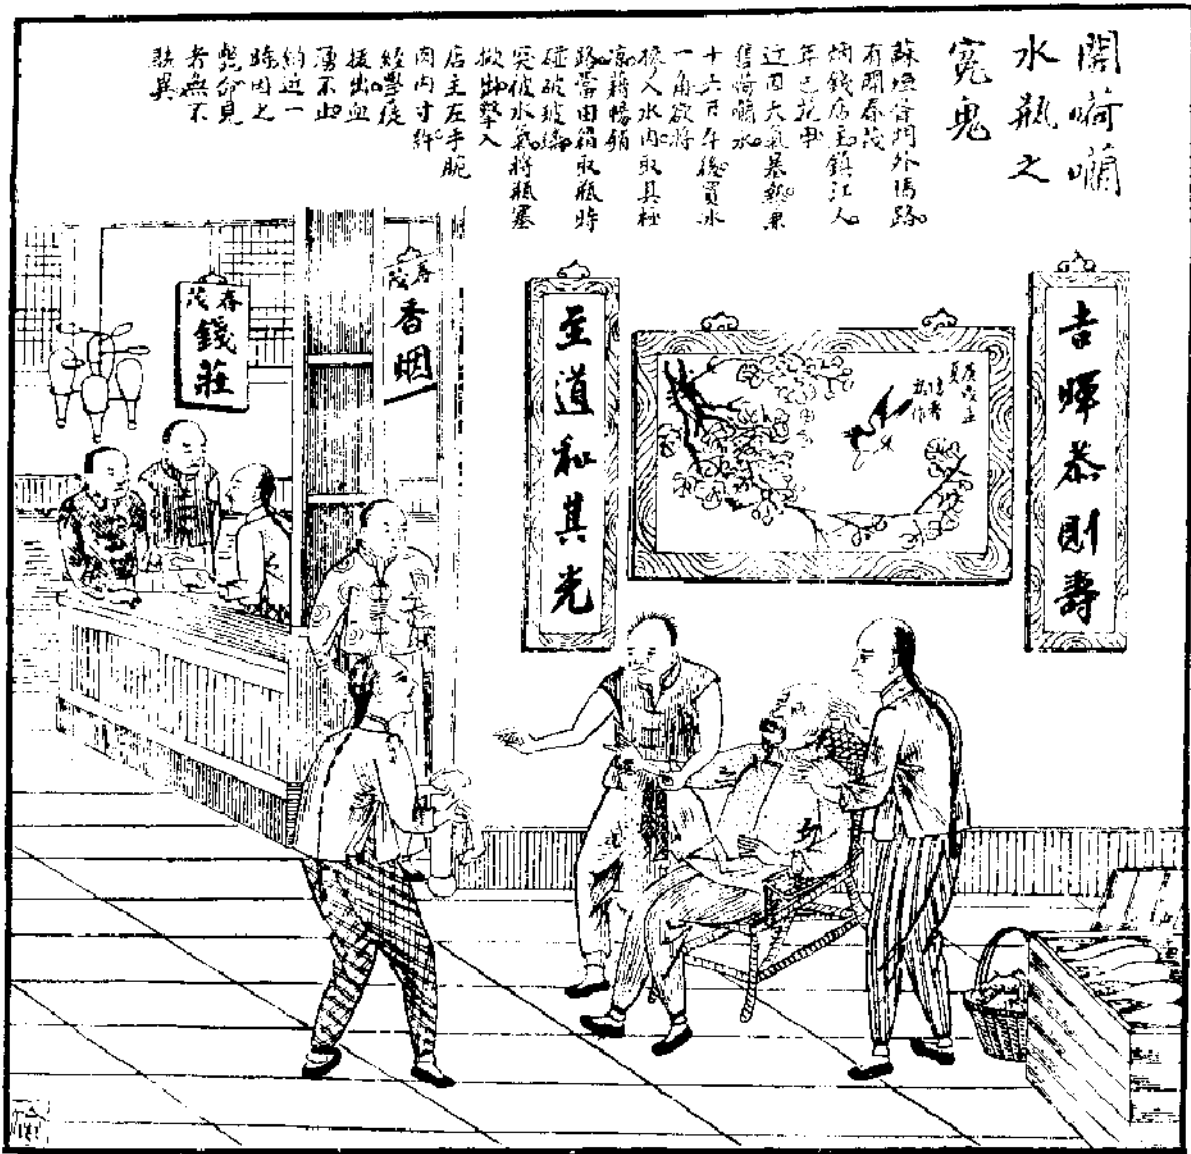 開嗬囒
水瓶之
冤鬼
蘇垣胥門外馬路
有開春茂
烟錢店主鎮江人
年已花甲
近因天氣暴熱兼
售荷囒水
十六日午後買冰
一角欲將
撩入水內取其極
涼藉暢銷
路當由箱取瓶時
碰破玻璃
突被水氣將瓶塞
掀出擊入
店主左手腕
肉內寸許
經學徒
拔出血
湧不止
約近一
時因之
斃命見
者無不
駭異
吉暉恭則壽
至道和其光
庚戌孟
夏
作
春茂
香烟
春茂
錢莊